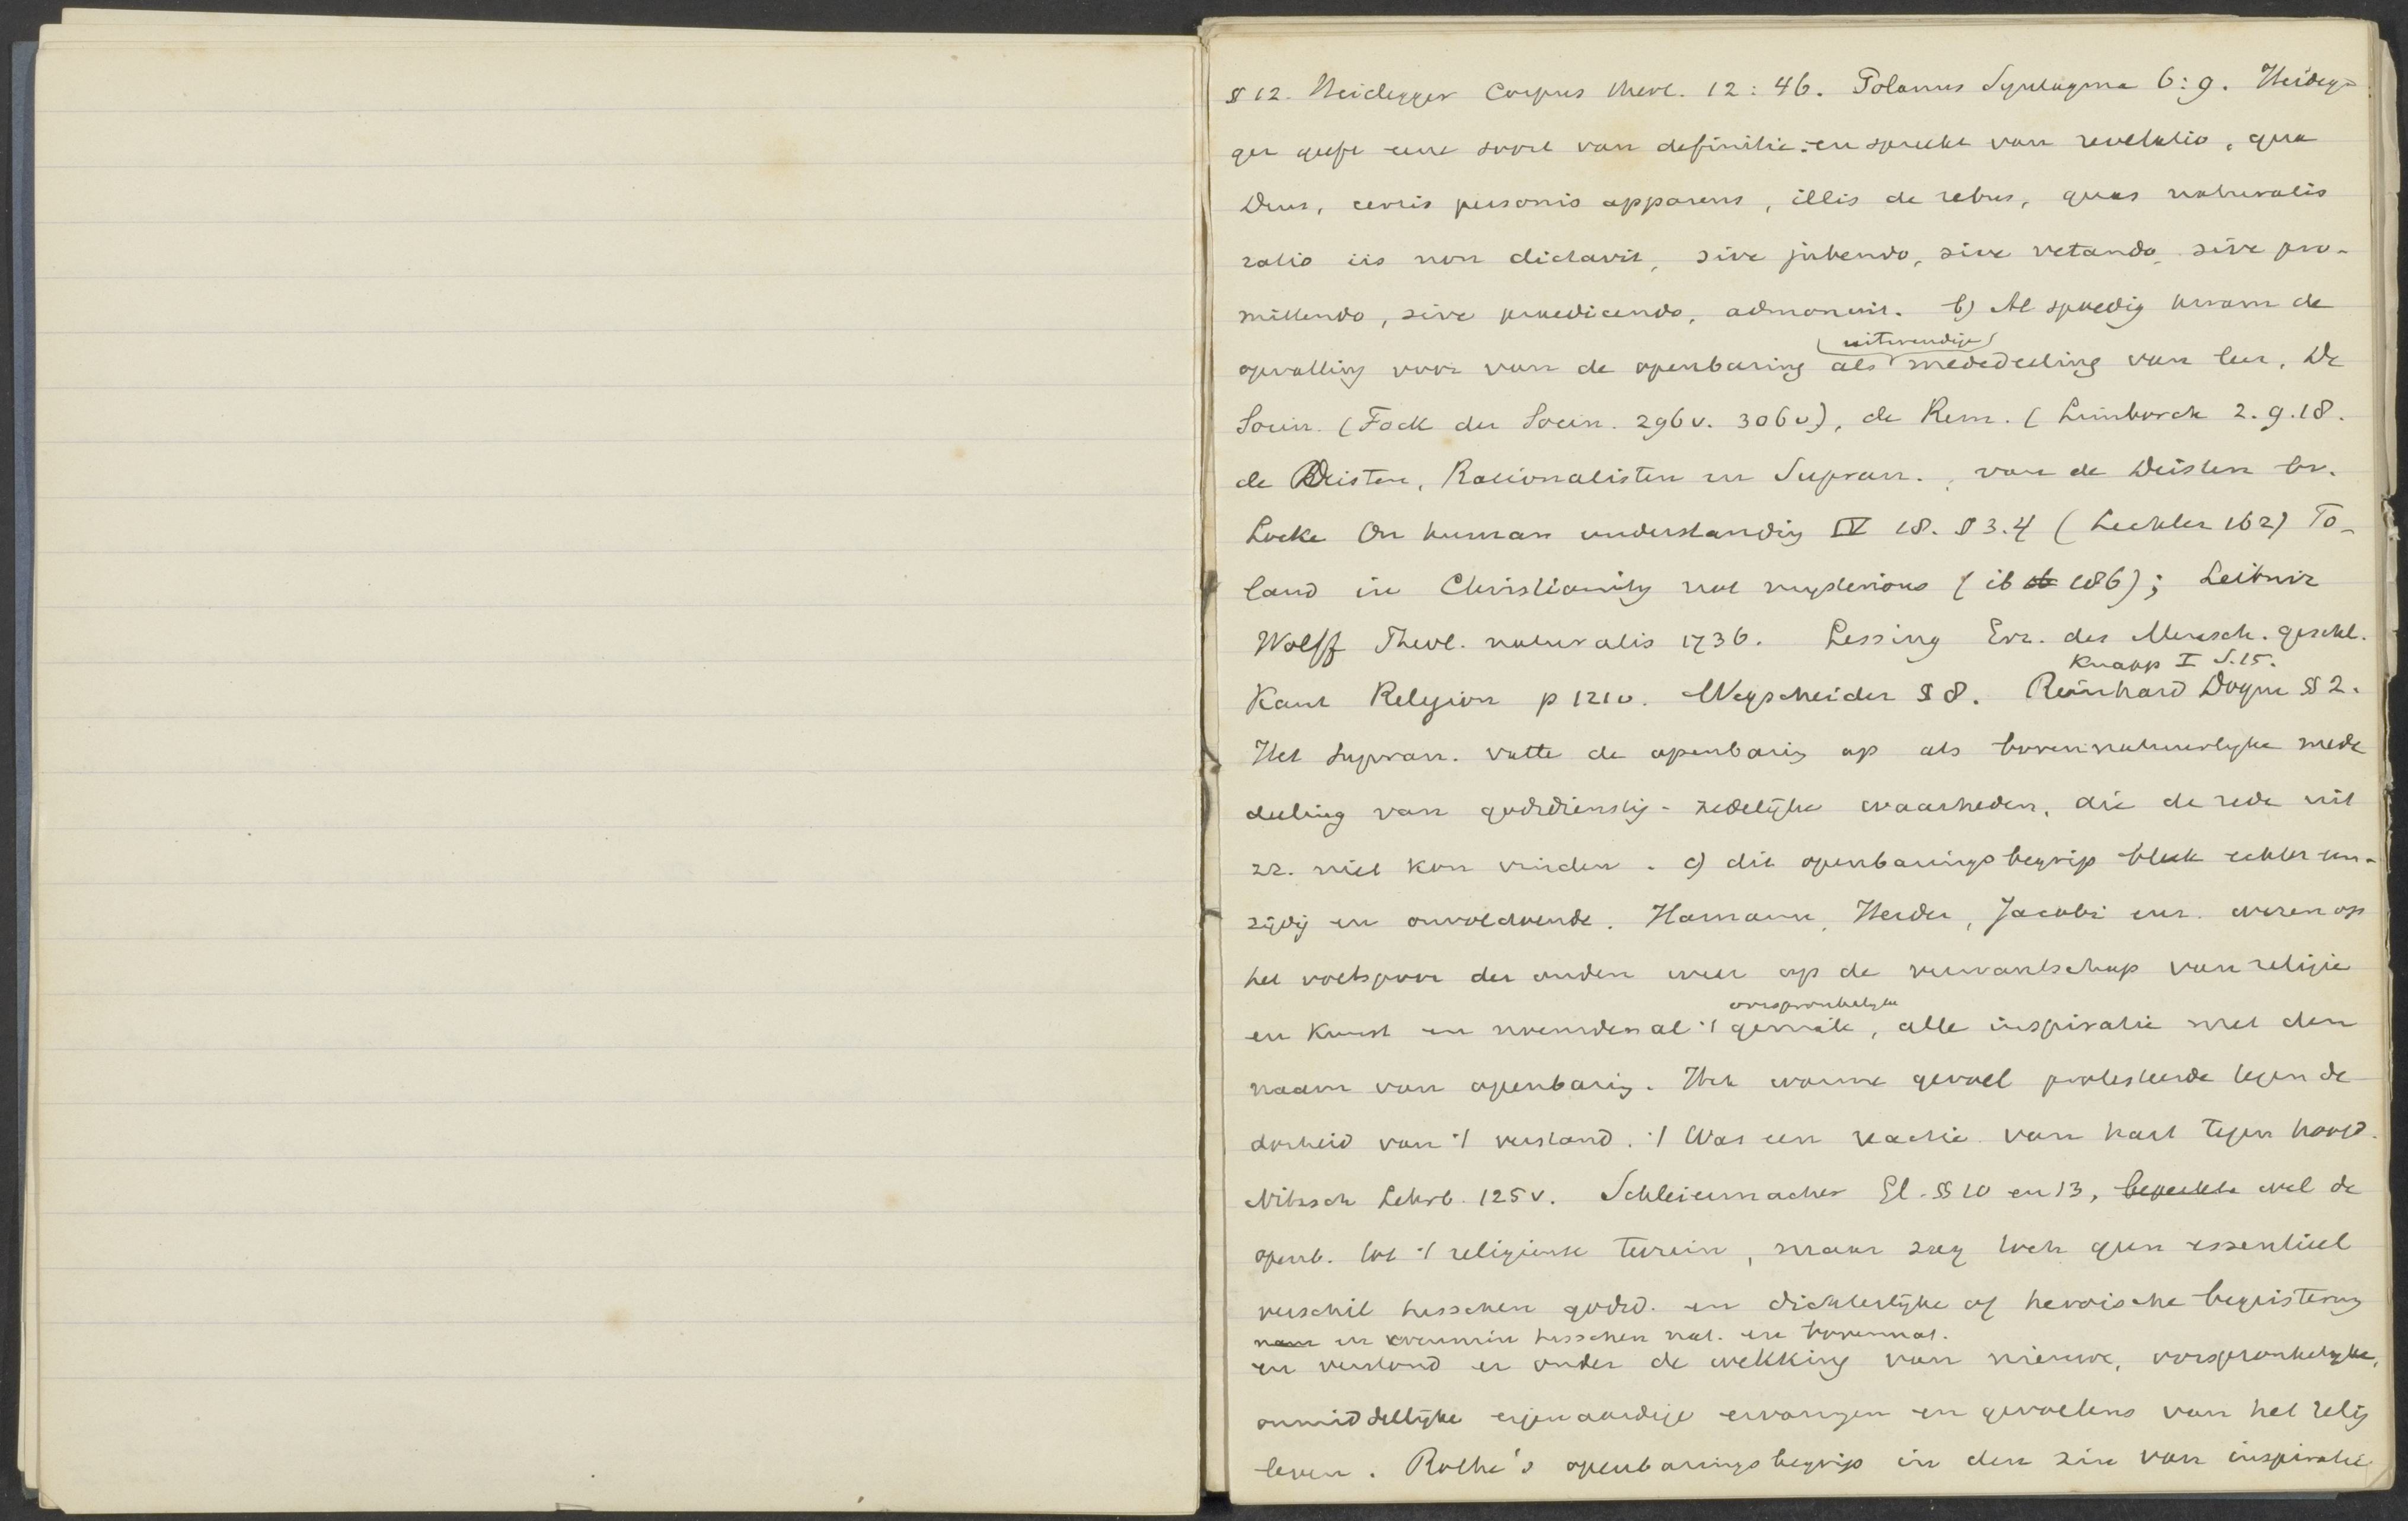 § 12. Heidegger Corpus theol. 12 : 46. Polanus Syntagma 6 : 9. Heideg-
ger geeft eene soort van definitie: en spreekt van revelatio, qua
Deus, certis personis apparens, illis de rebus, quas naturalis
ratio iis non dictavit, sive jubendo, sive vetando, sive pro-
mittendo, sive praedicendo, admonuit. b) Al spoedig kwam de
uitwendige
opvatting voor van de openbaring als mededeeling van leer. De
Socin. (Fock der Socin. 296 v. 306 v), de Rem. (Limborch 2. 9. 18.
de Deisten, Rationalisten en Supran., van de Deisten bv.
Locke On human understandig IV 18. § 3. 4 (Lechler 162) To-
land in Christianity not mysterious (ib 186); Leibniz
Wolff Theol. naturalis 1736. Lessing Erz. des Mensch. geschl.
Knapp I S. 15.
Kant Religion p 121 v. Wegscheider § 8. Reinhard Dogm § 2.
Het supran. vatte de openbarig op als bovennatuurlyke mede
deeling van godsdienstig-zedelijke waarheden, die de rede uit
zz. niet kon vinden. c) dit openbaringsbegrip bleek echter een-
zijdig en onvoldoende. Hamann, Herder, Jacobi enz. wezen op
het voetspoor der ouden weer op de verwantschap van religie
oorspronkelyke
en kunst en noemden al 't geniale, alle inspiratie met den
naam van openbarig. Het warme gevoel protesteerde tegen de
dorheid van 't verstand. 't Was een reactie van hart tegen hoofd.
Nitzsch Lehrb. 125 v. Schleiermacher Gl. §§ 10 en 13, beperkte wel de
openb. tot 't religieuse terrein, maar zag toch geen essentieel
verschil tusschen godsd. en dichterlijke of heroische begeistering
en evenmin tusschen nat. en bovennat.
en verstond er onder de wekking van nieuwe, oorspronkelyke,
onmiddellijke eigenaardige ervaringen en gevoelens van het relig
leven. Rothe's openbaringsbegrip in den zin van inspiratie